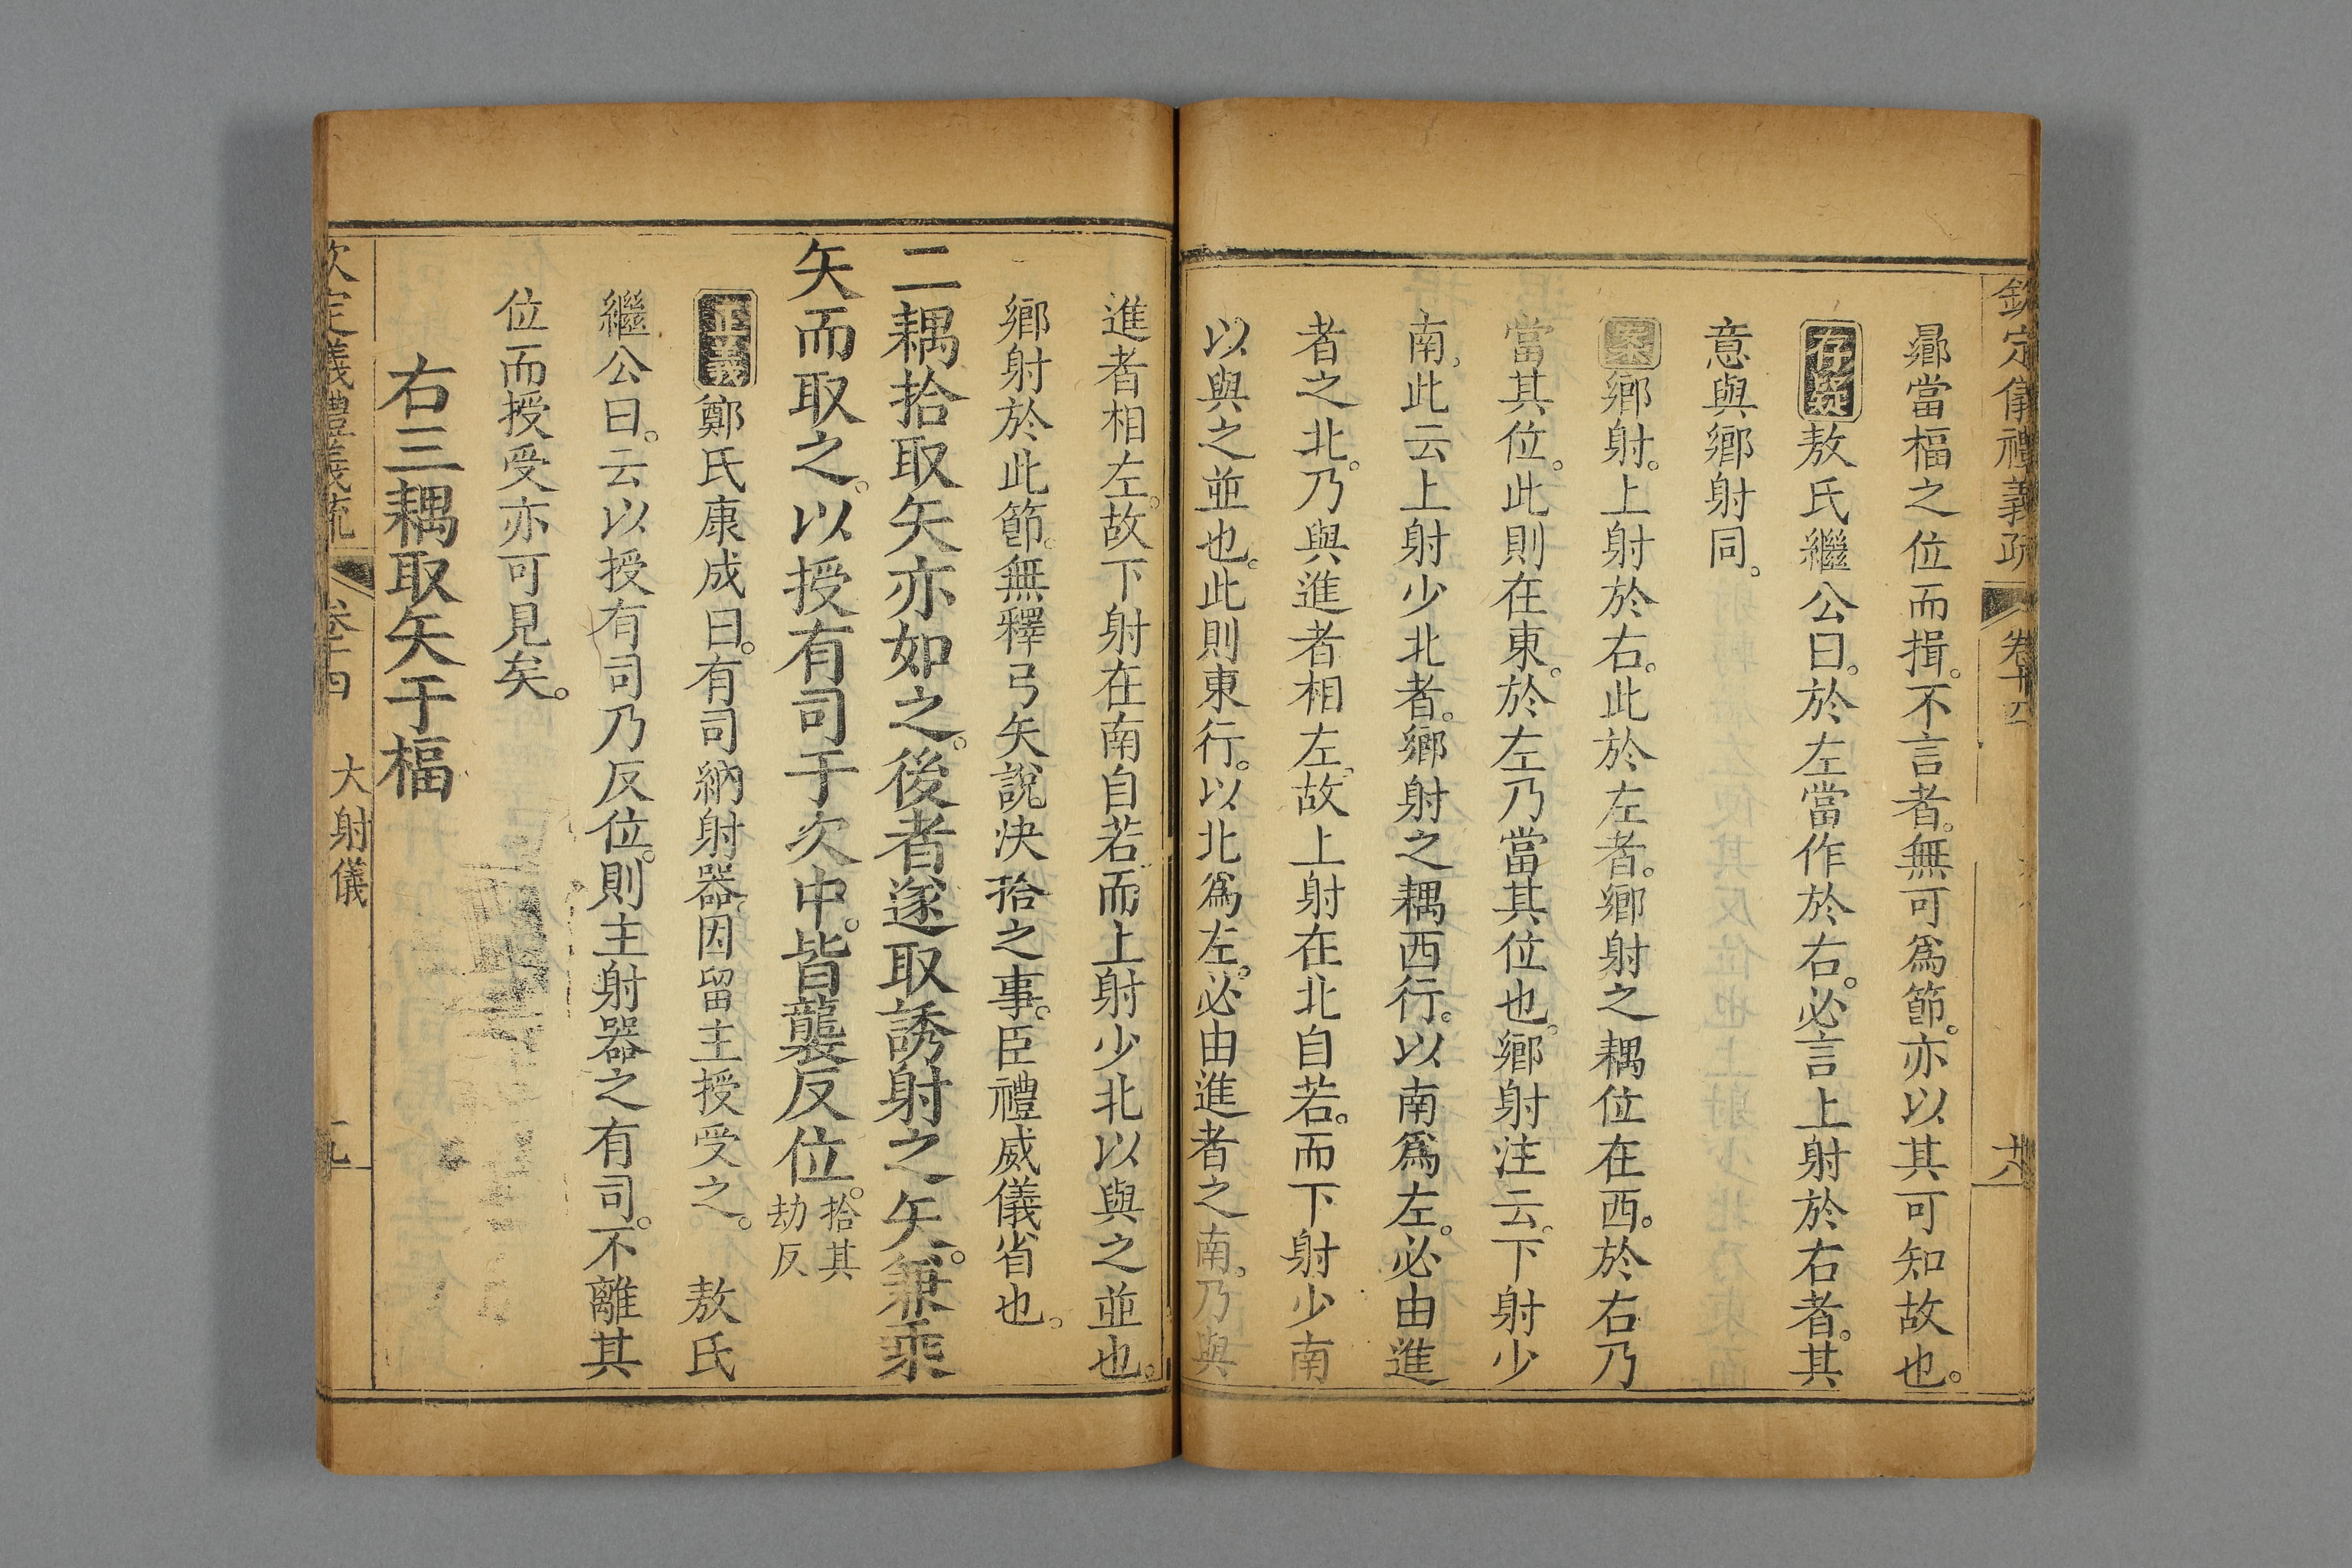 欽定儀禮義疏 卷十四
曏當楅之位而揖。不言者。無可爲節。亦以其可知故也。
存疑敖氏繼公曰。於左當作於右。必言上射於右者。其
意與鄉射同。
案鄉射。上射於右。此於左者。鄉射之耦位在西。於右乃
當其位。此則在東。於左乃當其位也。鄉射注云。下射少
南。此云上射少北者。鄉射之耦西行。以南爲左。必由進
者之北。乃與進者相左。故上射在北自若。而下射少南
以與之並也。此則東行。以北爲左。必由進者之南。乃與
進者相左。故下射在南自若。而上射少北以與之並也。
鄉射於此節。無釋弓矢說決拾之事。臣禮威儀省也。
二耦拾取矢亦如之。後者遂取誘射之矢。兼乘
矢而取之。以授有司于次中。皆襲反位。拾其劫反
正義鄭氏康成曰。有司納射器。因留主授受之。 敖氏
繼公曰。云以授有司乃反位。則主射器之有司。不離其
位而授受亦可見矣。
右三耦取矢于楅
欽定儀禮義疏 卷十四 大射儀